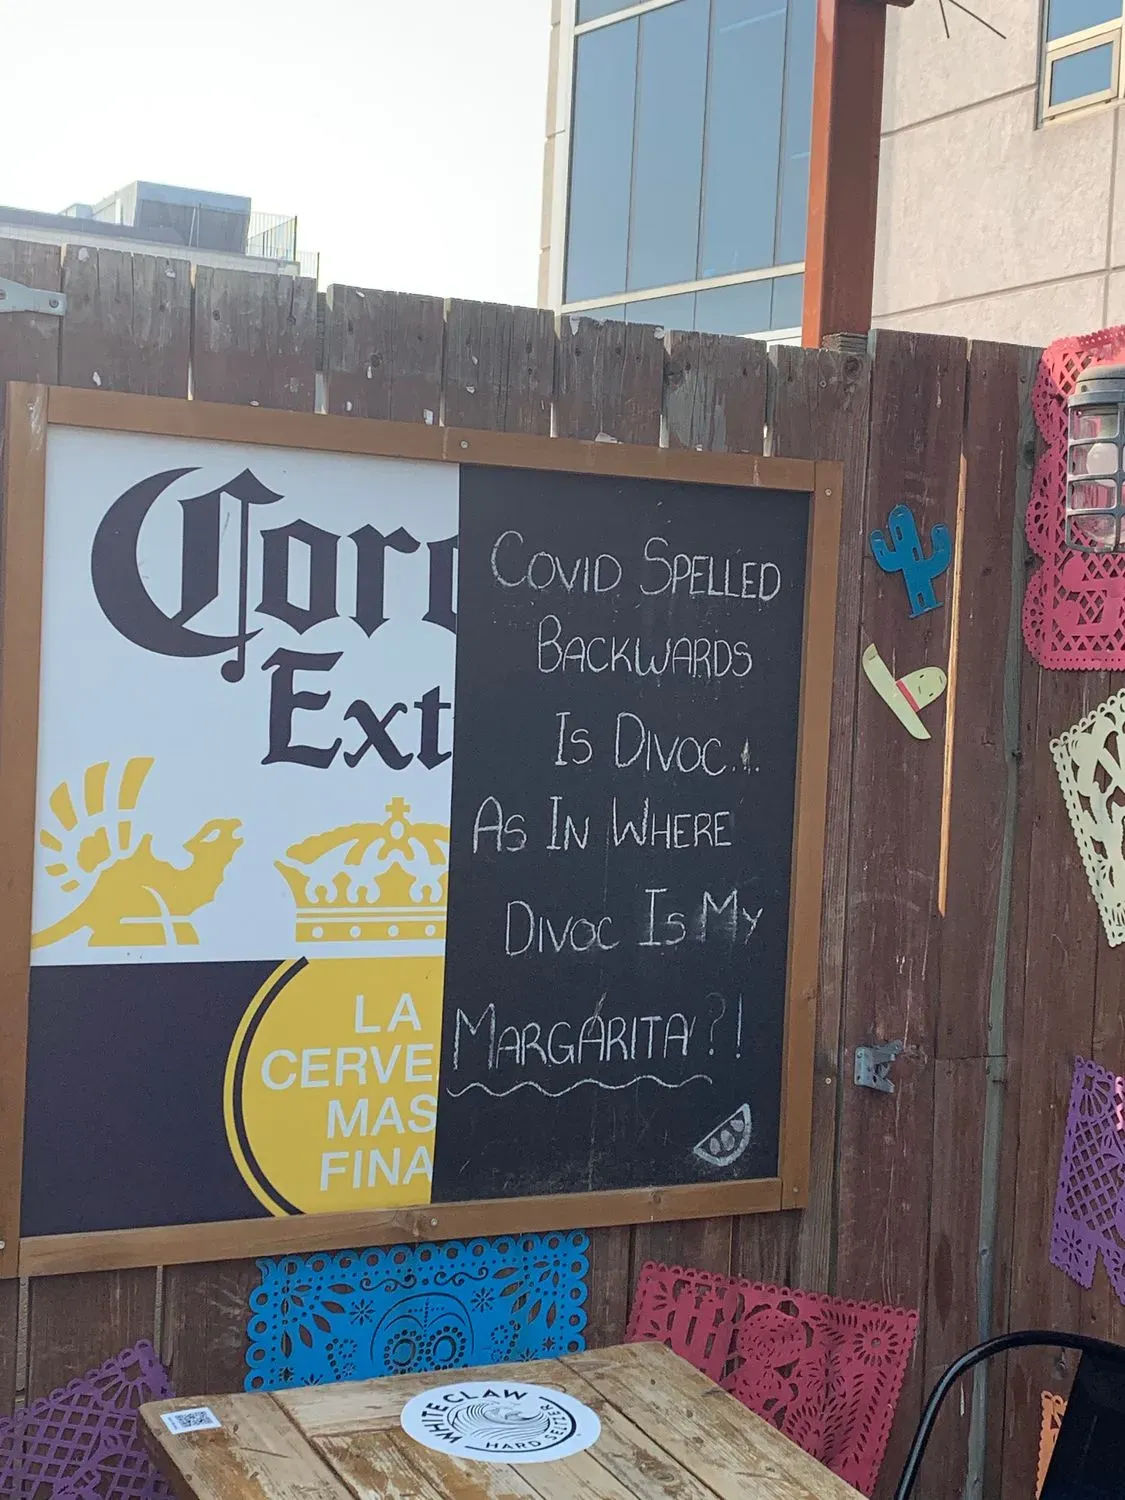 Coro
Ext
LA
CERVE
MAS
FINA
COVID SPELLED
BACKWARDS
IS DIVOC...
AS IN WHERE
DIVOC IS MY
MARGARITA?!
WHITE CLAW
HARD SELTZER